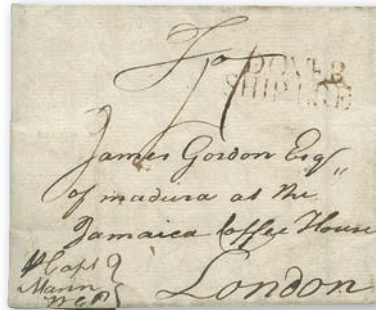 To
DOVER
SHIP LRE
James Gordon Esqr
of madura at the
Jamaica Coffee House
London
Capt
Mann